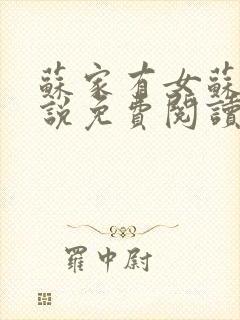 蘇家有女蘇
說免費閱讀
羅中尉